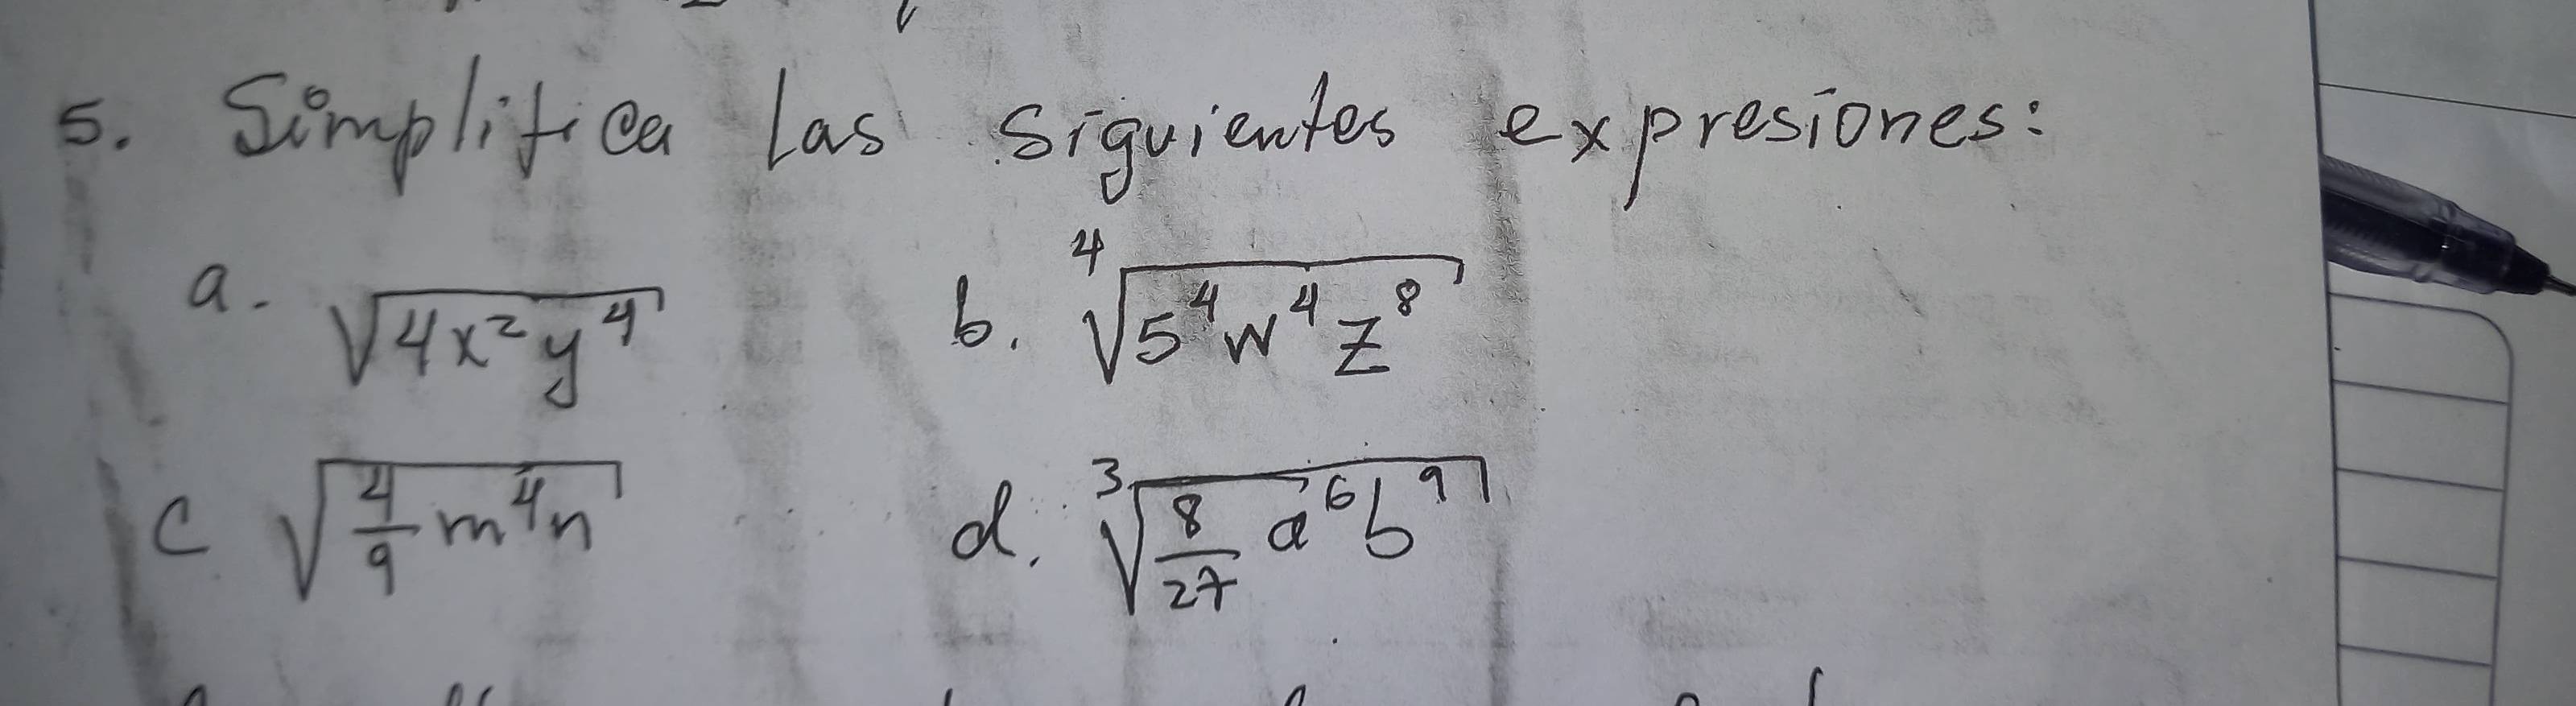 5. Simplifica las siguientes expresiones:
a. √(4x²y⁴) b. ⁴√(5⁴w⁴z⁸)
c √(4/9 m⁴n) d. ³√(8/27 a⁶b⁹)